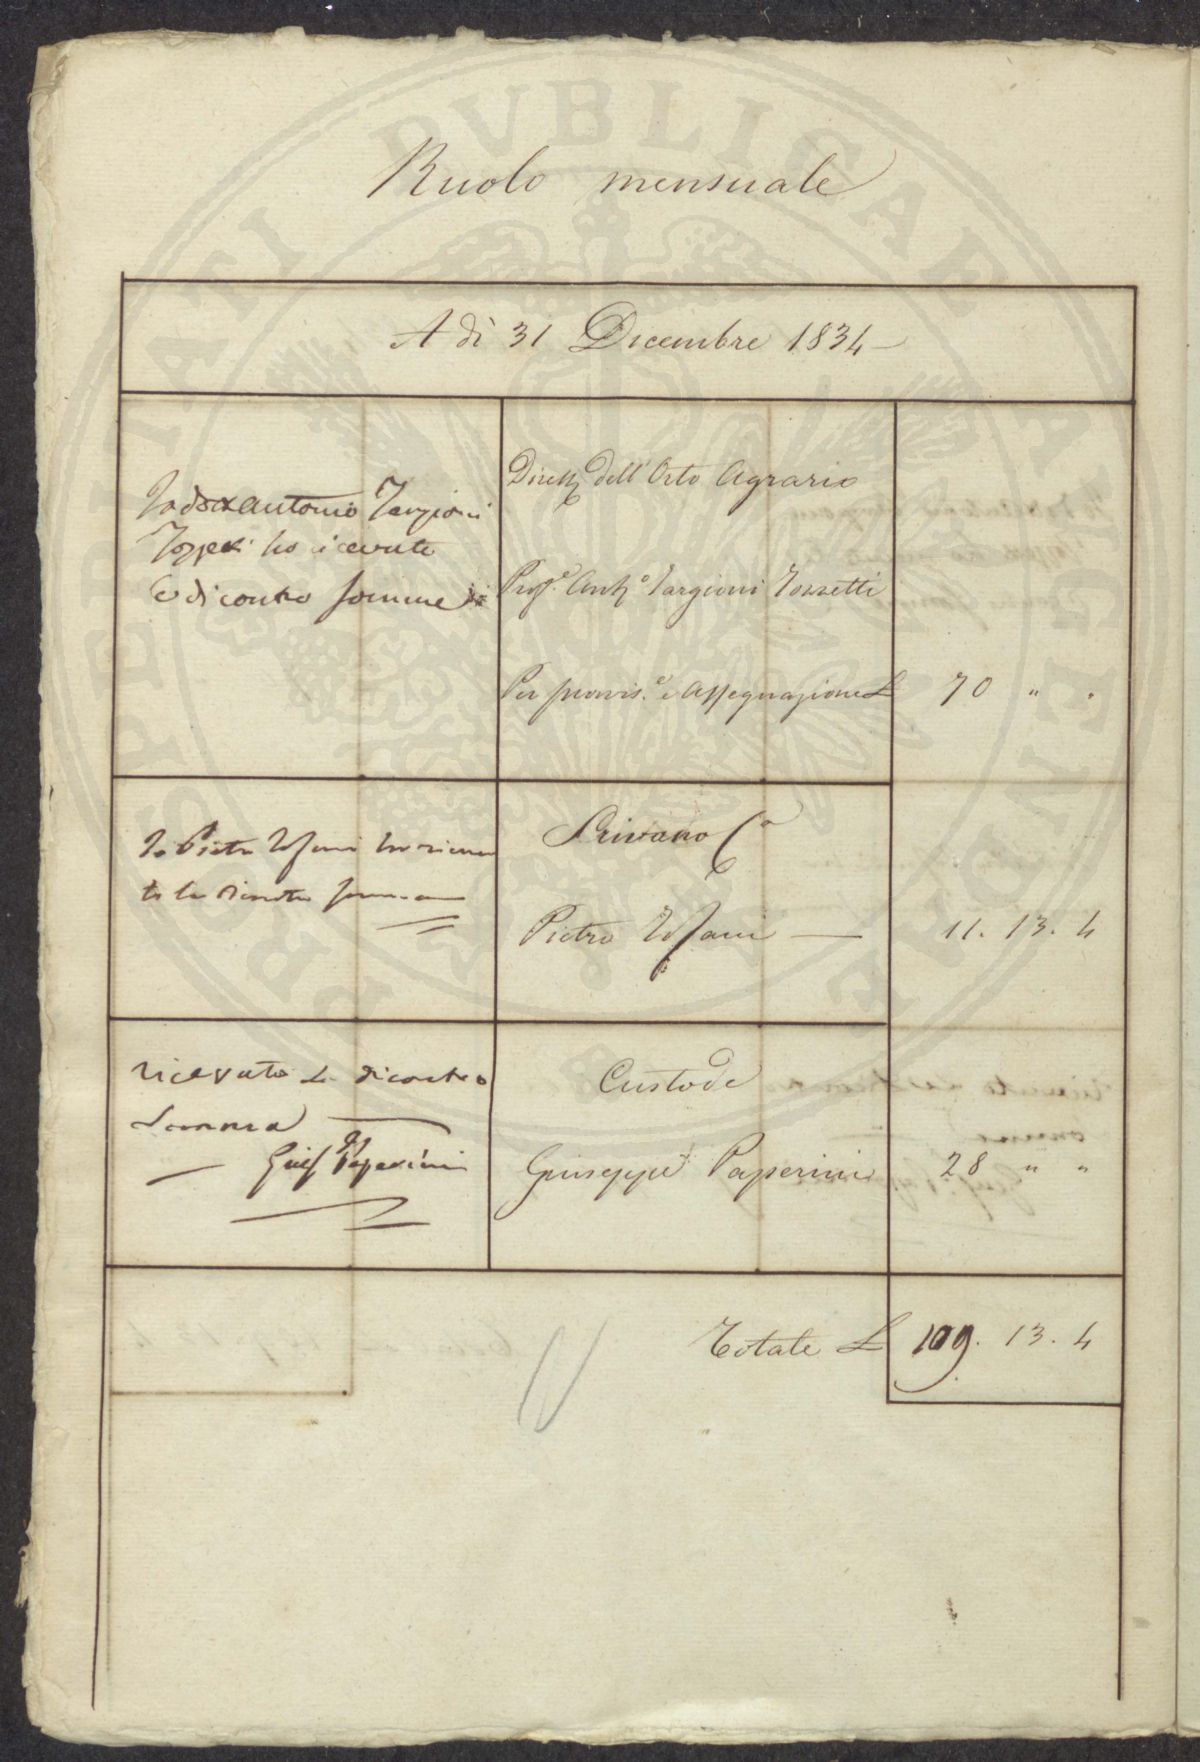 Ruolo mensuale
A dì 31 Dicembre 1834
Io dor antonio Targioni
Tozzetti ho ricevute
le di contro somme
Dirett.e dell'Orto Agrario
Prof.e Ant.o Targioni Tozzetti
Per provvis.e e Assegnazione £ 70 " "
Io Pietro ho ricevu
to la di contro somma
Scrivano
Pietro 11. 13. 4
ricevuto la dicontro
Somma
Gius.e Paperini
Custode
Giuseppe Paperini 28 " "
Totale £ 109. 13. 4
PROSPERITATI PUBLICAE AUGENDAE